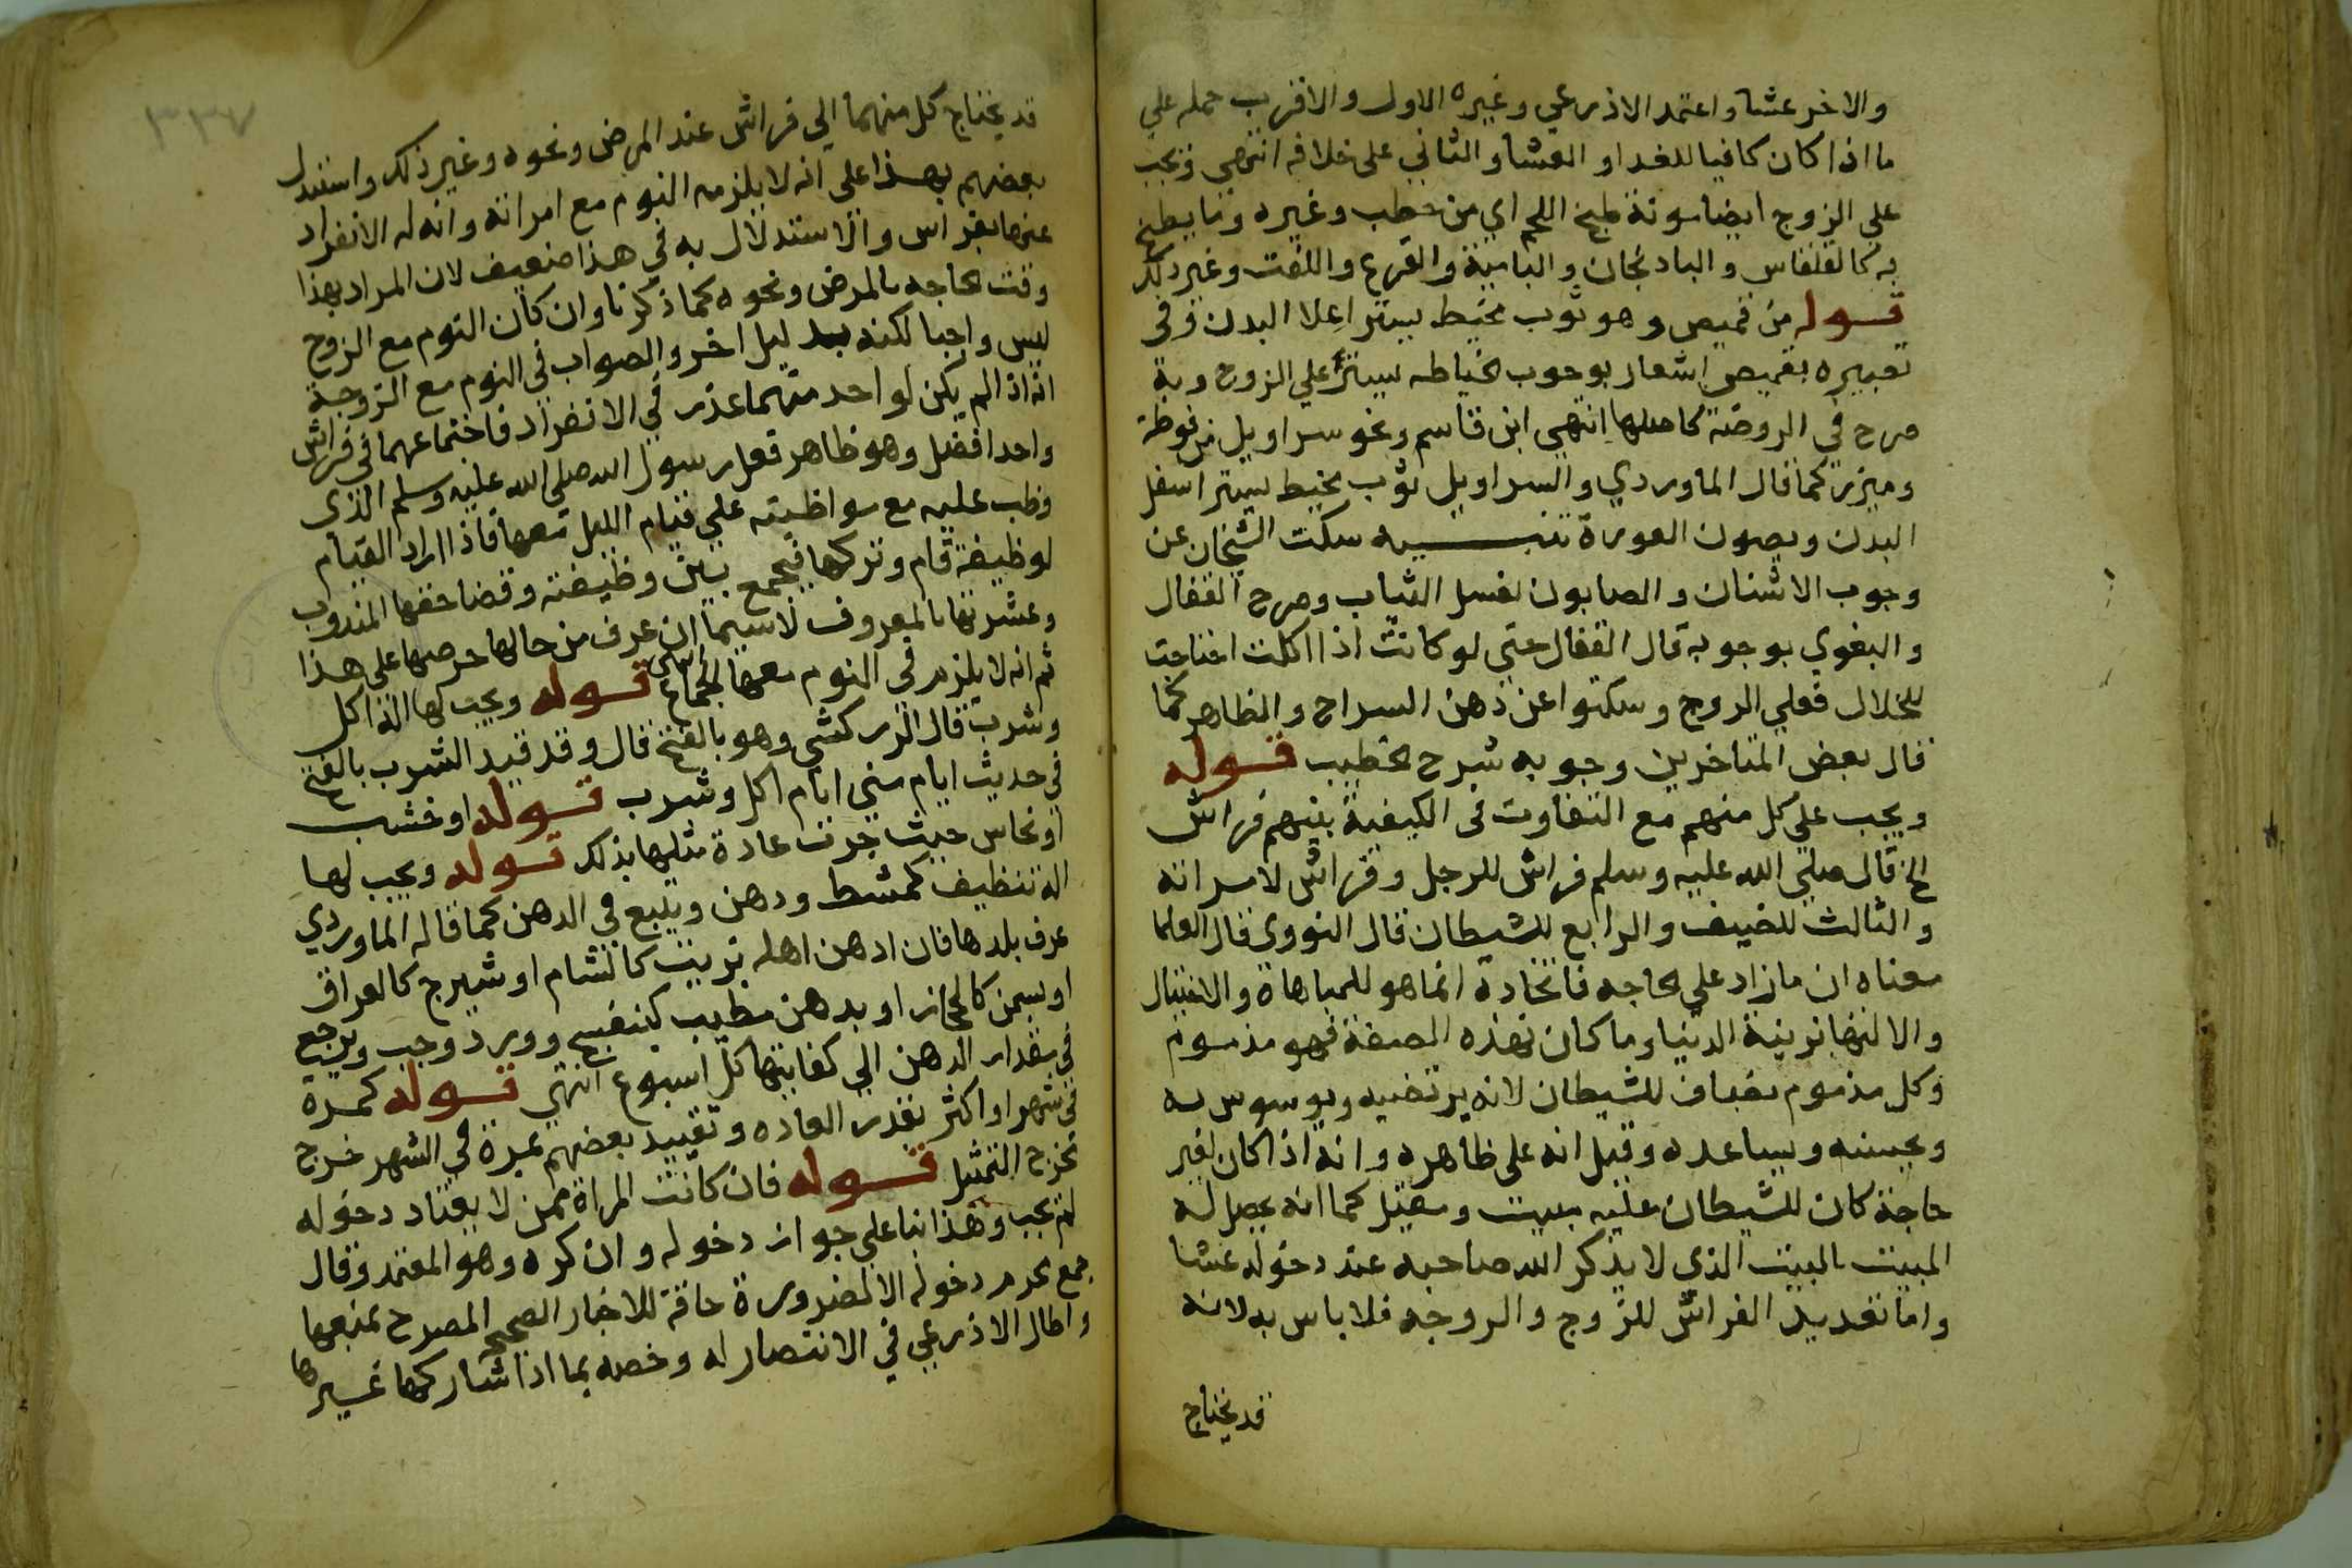 والاخر عشا واعتمد الاذرعي وغيره الاول والاقرب حمله علي
ما اذا كان كافيا للغدا والعشا والثاني على خلافه انتهي ويجب
علي الزوج ايضا مونة طبخ اللحم اي من حطب وغيره وما يطبخ
به كالقلقاس والبادنجان والبامية والقرع واللفت وغير ذلك
قوله من قميص وهو ثوب مخيط يستر اعلا البدن وفي
تعبيره بقميص اشعار بوجوب الخياطه علي الزوج وبه
صرح في الروضة كاصلها انتهي ابن قاسم ونحو سراويل من فوطة
وميزر كما قال الماوردي والسراويل ثوب مخيط يستر اسفل
البدن ويصون العورة تنبيه سكت الشيخان عن
وجوب الاشنان والصابون لغسل الثياب وصرح القفال
والبغوي بوجوبه قال القفال حتي لو كانت اذا اكلت احتاجت
للخلال فعلي الزوج وسكتوا عن دهن السراج والظاهر كما
قال بعض المتاخرين وجوبه شرح الخطيب قوله
ويجب علي كل منهم مع التفاوت في الكيفية بينهم فراش
الخ قال صلي الله عليه وسلم فراش للرجل وفراش لامراته
والثالث للضيف والرابع للشيطان قال النووي قال العلما
معناه ان ما زاد علي الحاجه فاتخاده انما هو للمباهاة والاختيال
والالتها بزينة الدنيا وما كان بهذه الصفة فهو مذموم
وكل مذموم يضاف للشيطان لانه يرتضيه ويوسوس به
ويحسنه ويساعده وقيل انه على ظاهره وانه اذا كان لغير
حاجة كان للشيطان عليه مبيت ومقيل كما انه يحصل له
المبيت بالبيت الذي لا يذكر الله صاحبه عند دخوله عشا
واما تعديد الفراش للزوج والزوجه فلا باس به لانه
قد يحتاج
٣٣٧
قد يحتاج كل منهما الي فراش عند المرض ونحوه وغير ذلك واستدل
بعضهم بهذا على انه لا يلزمه النوم مع امراته وانه له الانفراد
عنها بفراش والاستدلال به في هذا ضعيف لان المراد بهذا
وقت الحاجه بالمرض ونحوه كما ذكرنا وان كان النوم مع الزوج
ليس واجبا لكنه بدليل اخر والصواب في النوم مع الزوجة
انه اذا لم يكن لواحد منهما عذر في الانفراد فاجتماعهما في فراش
واحد افضل وهو ظاهر فعل رسول الله صلي الله عليه وسلم الذي
وظب عليه مع مواظبته علي قيام الليل معها فاذا اراد القيام
لوظيفة قام وتركها فيجمع بين وظيفته وقضا حقها المندوب
وعشرتها بالمعروف لاسيما ان عرف من حالها حرصها على هذا
ثم انه لا يلزم في النوم معها الجماع انتهى قوله ويجب لها الة اكل
وشرب قال الزركشي وهو بالفتح قال وقد قيد الشرب بالفتح
في حديث ايام مني ايام اكل وشرب قوله او خشب
او نحاس حيث جرت عادة مثلها بذلك قوله ويجب لها
الة تنظيف كمشط ودهن ويتبع في الدهن كما قاله الماوردي
عرف بلدها فان ادهن اهله بزيت كالشام او شيرج كالعراق
او سمن كالحجاز او بدهن مطيب كبنفسج وورد وجب ويرجع
في مقدار الدهن الي كفايتها كل اسبوع انتهي قوله كمرة
في شهر او اكثر بقدر العاده وتقييد بعضهم بمرة في الشهر خرج
مخرج التمثيل قوله فان كانت المراة ممن لا يعتاد دخوله
لم يجب وهذا بنا علي جواز دخوله وان كره وهو المعتمد وقال
جمع يحرم دخوله الا لضرورة حاقة للاخبار الصحيح المصرح بمنعها
واطال الاذرعي في الانتصار له وخصه بما اذا شاركها غيرها